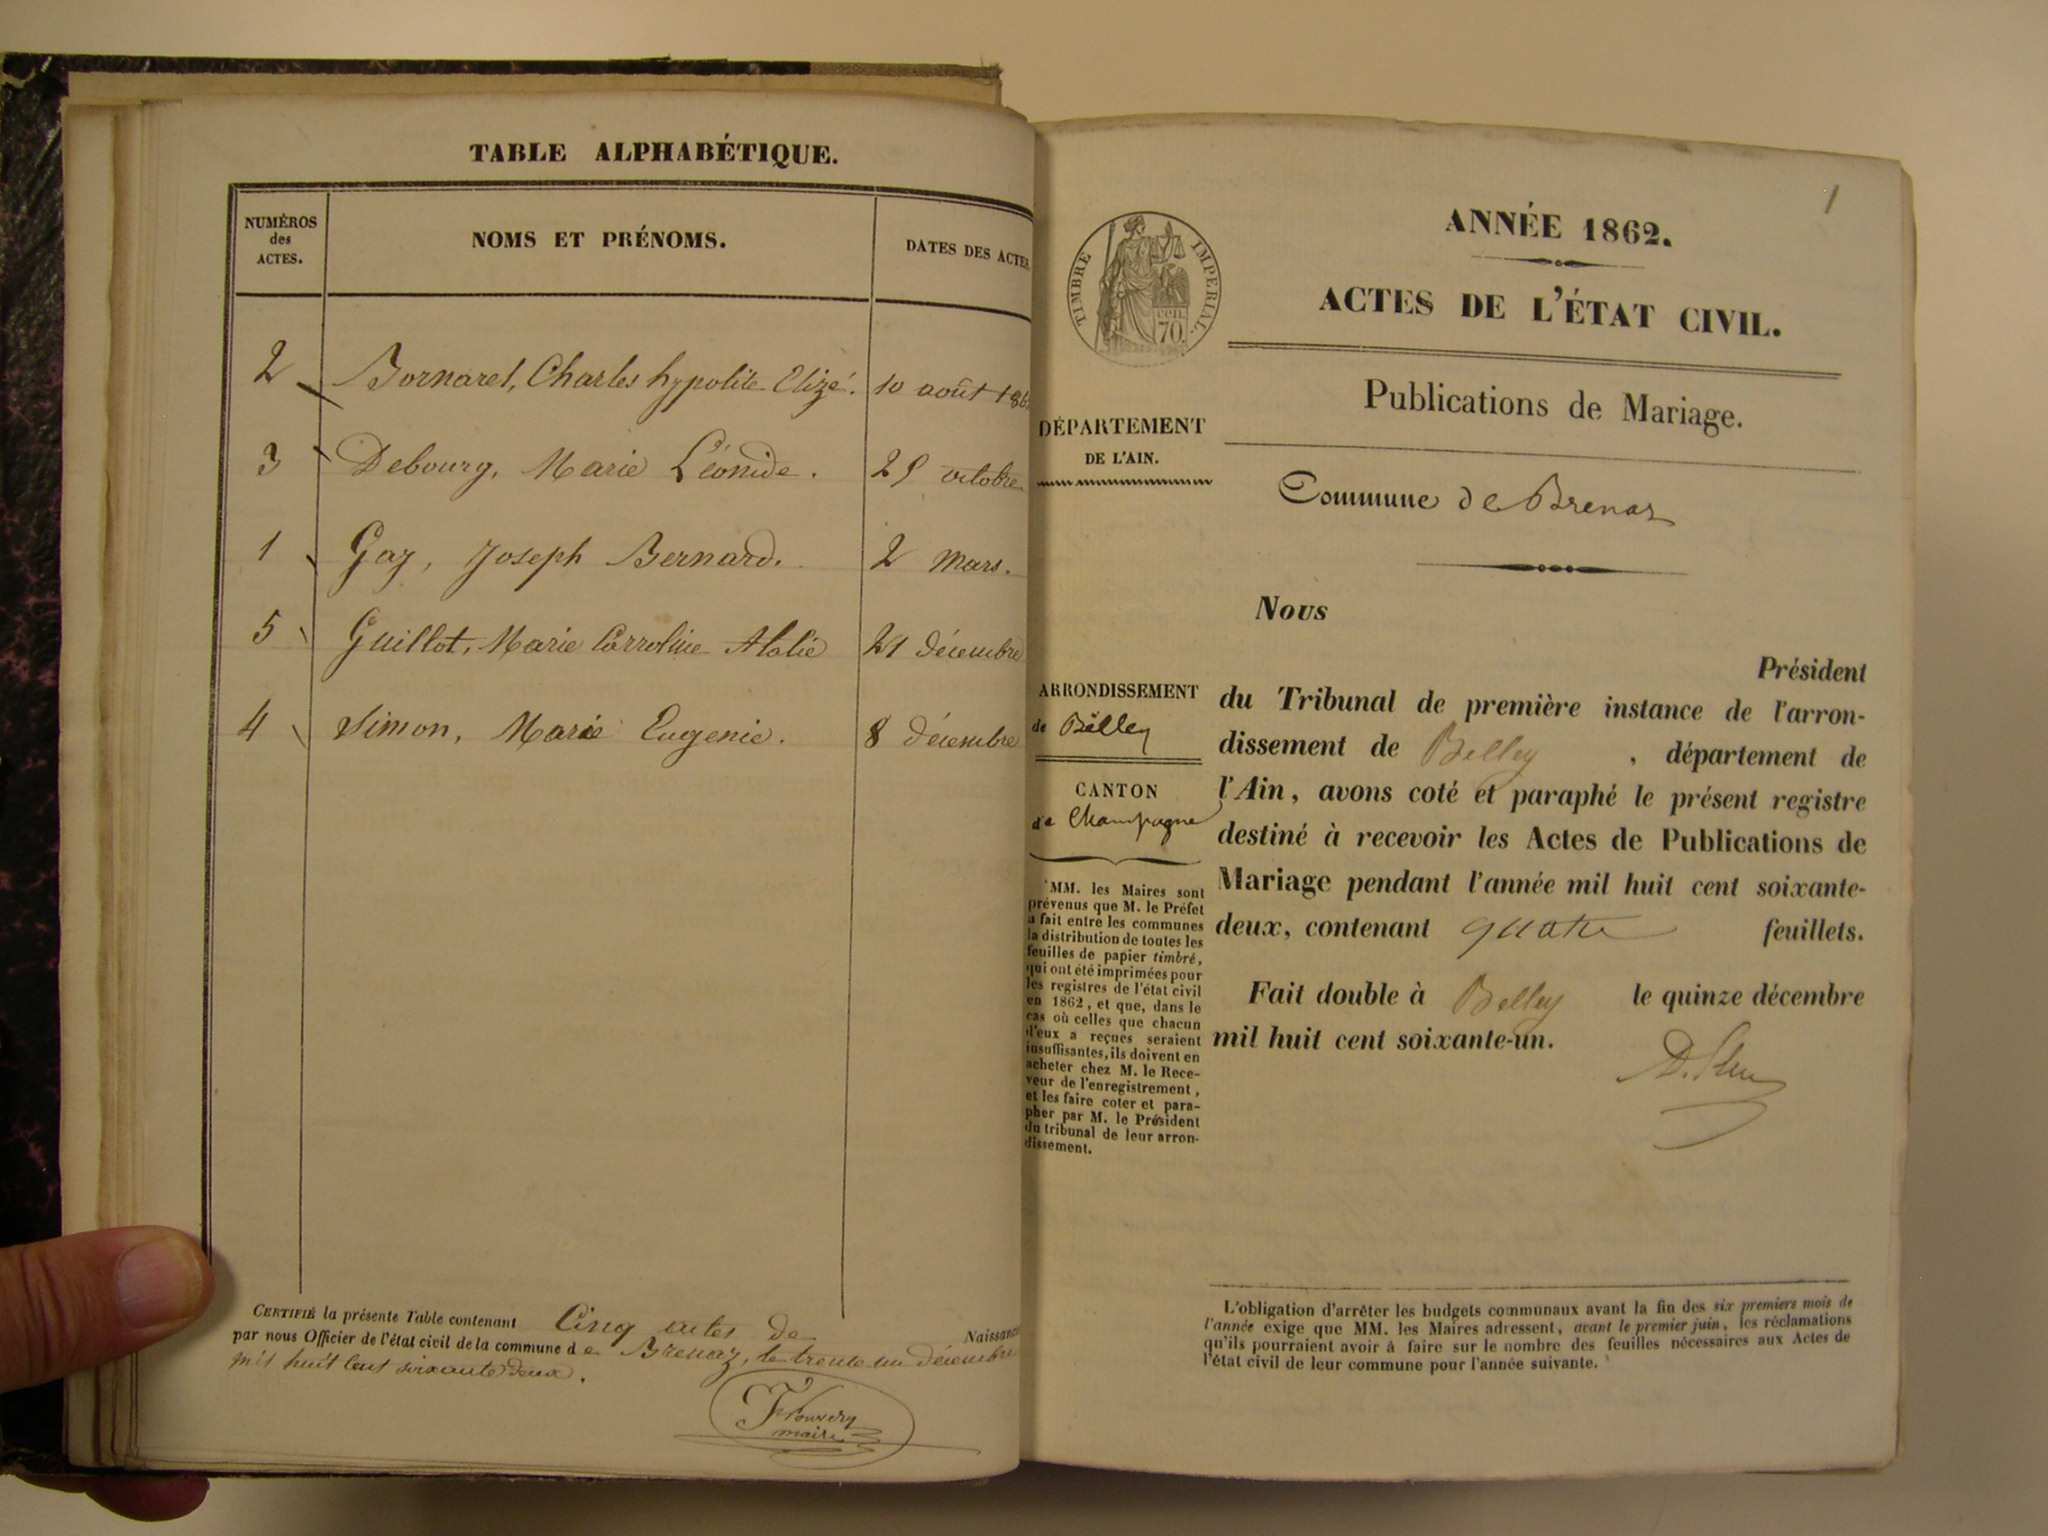 TABLE ALPHABÉTIQUE.
NUMÉROS
des
ACTES.
NOMS ET PRÉNOMS.
DATES DES ACTES
2 Bornarel, Charles hypolite Elizé. 10 août 186
3 Debourg, Marie Léonide. 25 octobre
1 Gay, Joseph Bernard. 2 Mars.
5 Guillot, Marie Carroline Atalie 21 décembre
4 Simon, Marie Eugenie. 8 décembre
CERTIFIÉ la présente Table contenant Cinq actes de Naissance
par nous Officier de l'état civil de la commune de Brenaz, le trente un décembre
mil huit cent soixante deux.
maire
1
TIMBRE IMPERIAL.
cen.
70.
ANNÉE 1862.
ACTES DE L'ÉTAT CIVIL.
Publications de Mariage.
DÉPARTEMENT
DE L'AIN.
Commune de Brenaz
ARRONDISSEMENT
de Belley
CANTON
de Champagne
MM. les Maires sont
prévenus que M. le Préfet
a fait entre les communes
la distribution de toutes les
feuilles de papier timbré,
qui ont été imprimées pour
les registres de l'état civil
en 1862, et que, dans le
cas où celles que chacun
d'eux a reçues seraient
insuffisantes, ils doivent en
acheter chez M. le Rece-
veur de l'enregistrement,
et les faire coter et para-
pher par M. le Président
du tribunal de leur arron-
dissement.
Nous
Président
du Tribunal de première instance de l'arron-
dissement de Belley, département de
l'Ain, avons coté et paraphé le présent registre
destiné à recevoir les Actes de Publications de
Mariage pendant l'année mil huit cent soixante-
deux, contenant quatre feuillets.
Fait double à Belley le quinze décembre
mil huit cent soixante-un.
L'obligation d'arrêter les budgets communaux avant la fin des six premiers mois de
l'année exige que MM. les Maires adressent, avant le premier juin, les réclamations
qu'ils pourraient avoir à faire sur le nombre des feuilles nécessaires aux Actes de
l'état civil de leur commune pour l'année suivante.